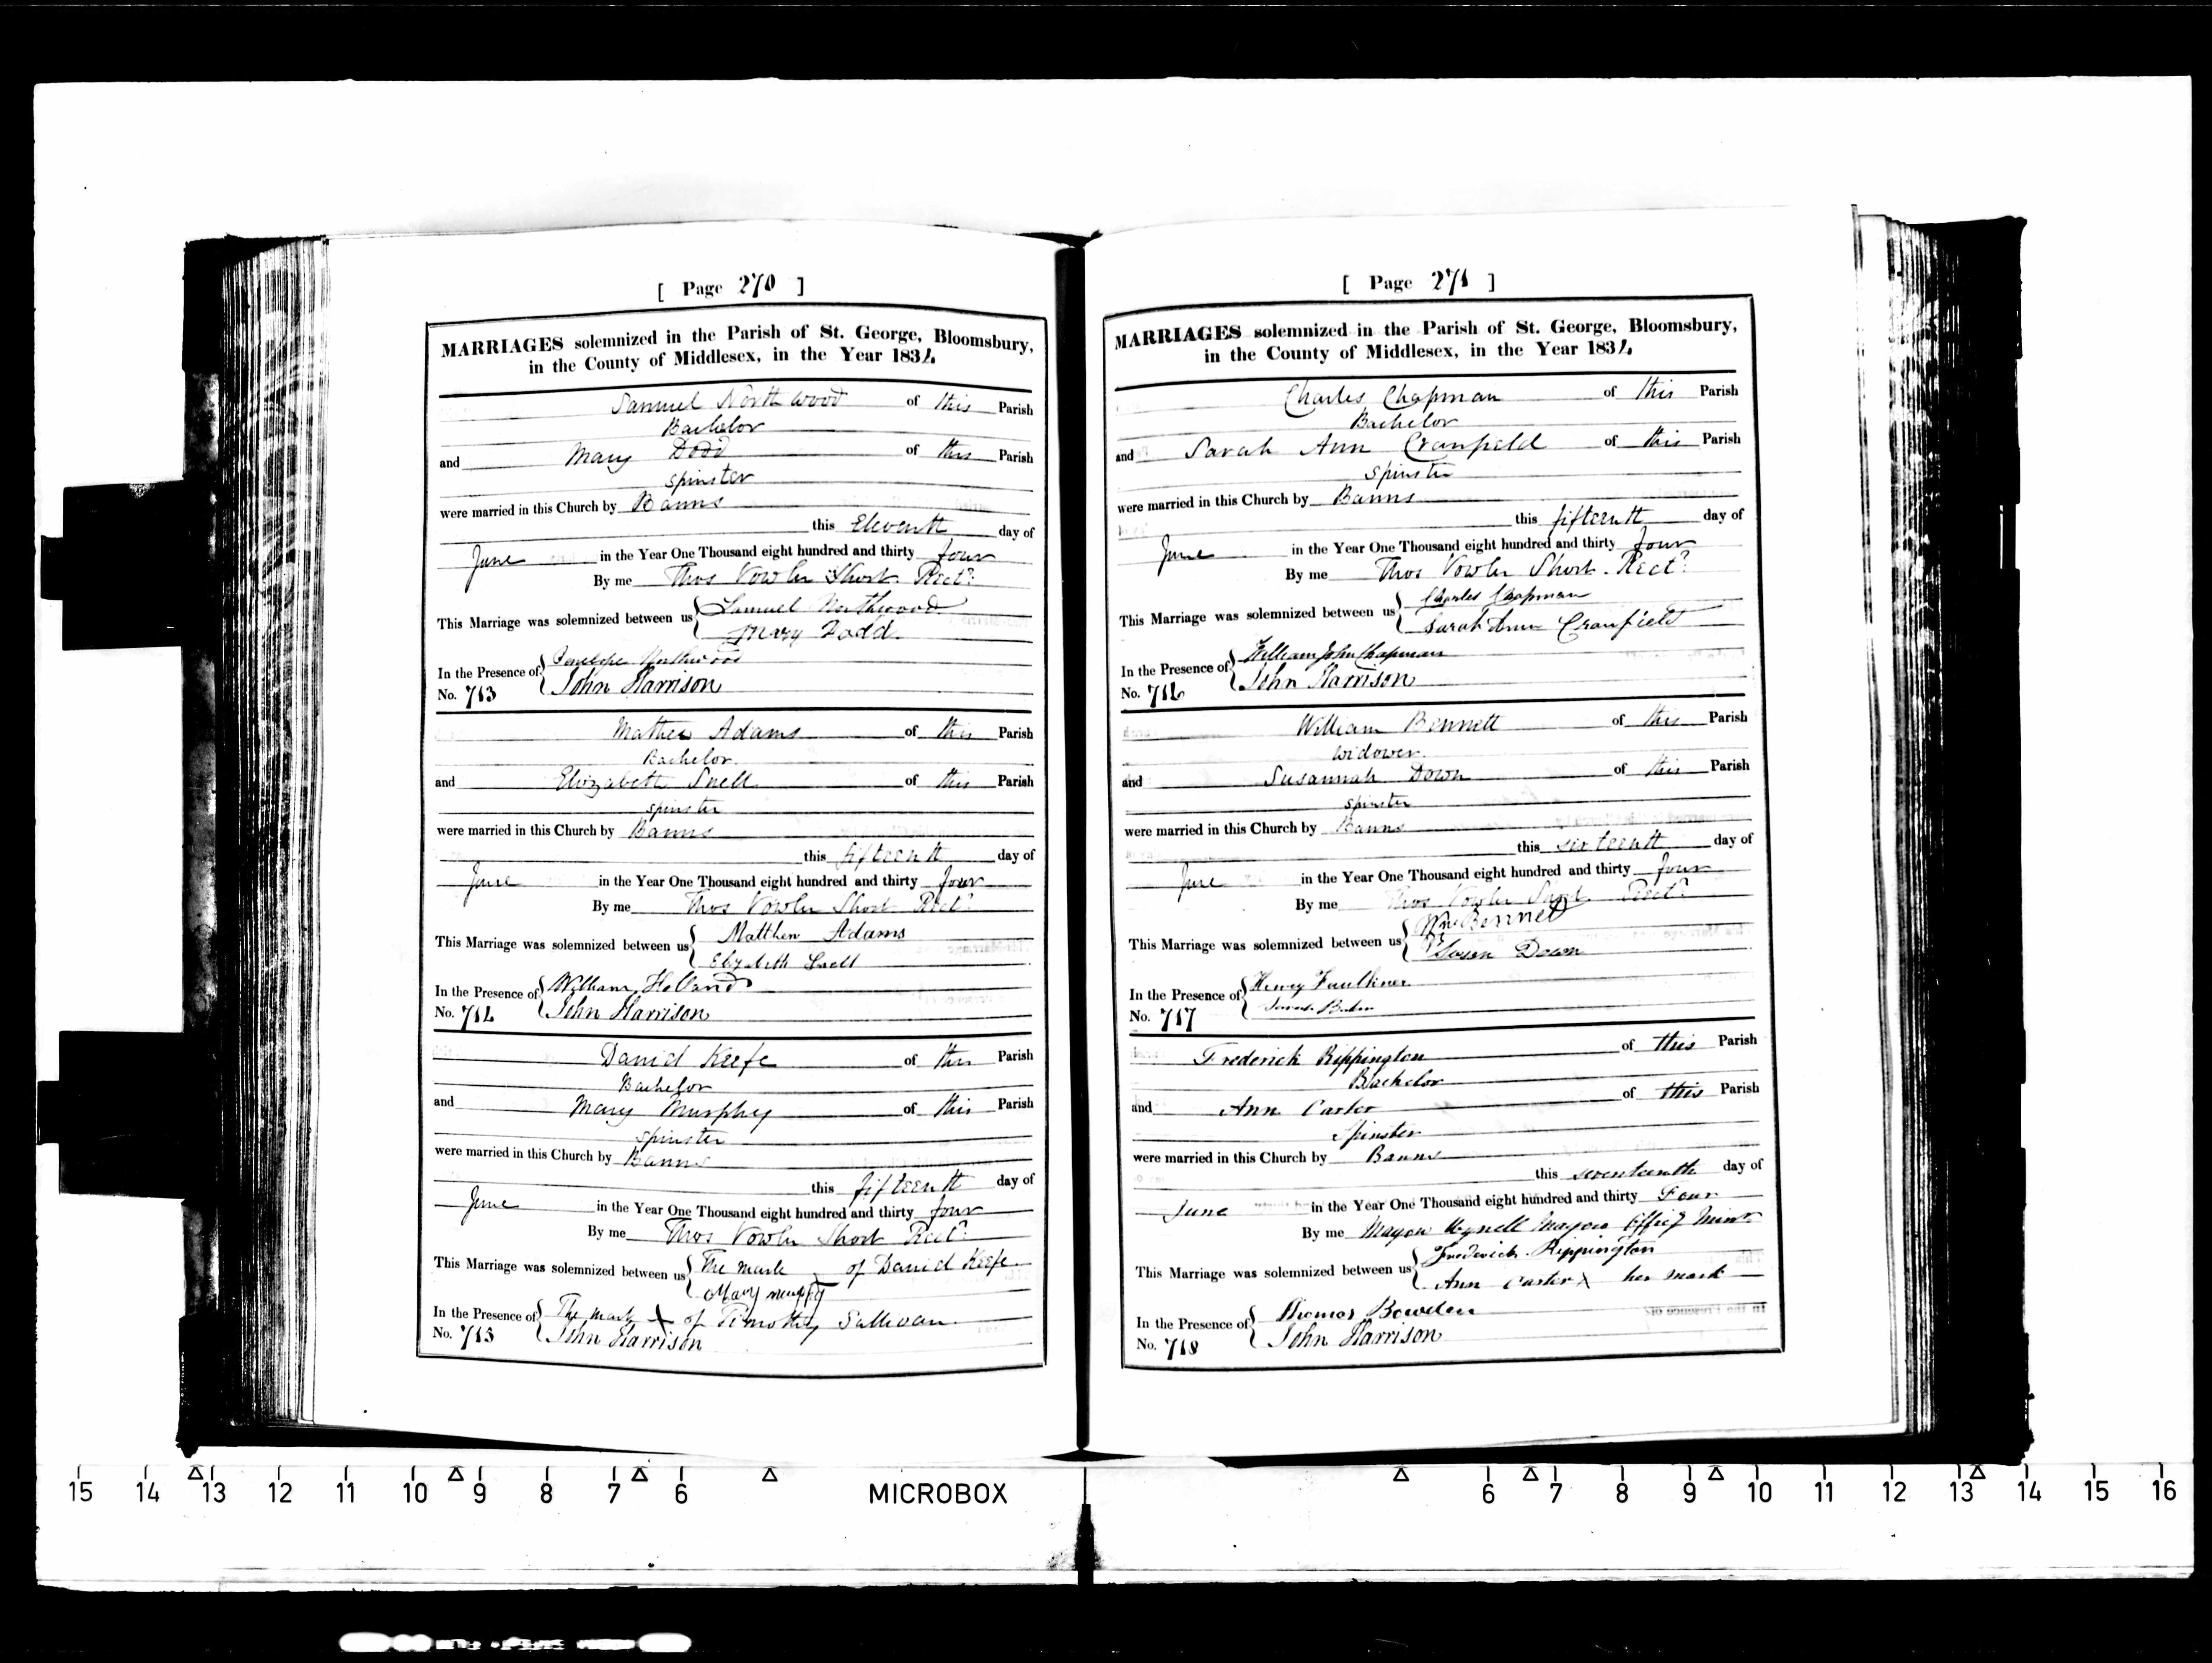 [ Page 270 ]
MARRIAGES solemnized in the Parish of St. George, Bloomsbury,
in the County of Middlesex, in the Year 1834
Samuel Northwood of this Parish
Bachelor
and Mary Dodd of this Parish
Spinster
were married in this Church by Banns
this Eleventh day of
June in the Year One Thousand eight hundred and thirty four
By me Thos Vowler Short. Rectr
This Marriage was solemnized between us Samuel Northwood
Mary Dodd
In the Presence of Penelope Northwood
No. 713 John Harrison
Mathew Adams of this Parish
Bachelor
and Elizabeth Snell of this Parish
Spinster
were married in this Church by Banns
this fifteenth day of
June in the Year One Thousand eight hundred and thirty four
By me Thos Vowler Short Rectr
This Marriage was solemnized between us Matthew Adams
Elizabeth Snell
In the Presence of William Holland
No. 714 John Harrison
David Keefe of this Parish
Bachelor
and Mary Murphy of this Parish
Spinster
were married in this Church by Banns
this fifteenth day of
June in the Year One Thousand eight hundred and thirty four
By me Thos Vowler Short Rectr
This Marriage was solemnized between us The mark of David Keefe
Mary
In the Presence of The mark X of Timothy Sullivan
No. 715 John Harrison
[ Page 271 ]
MARRIAGES solemnized in the Parish of St. George, Bloomsbury,
in the County of Middlesex, in the Year 1834
Charles Chapman of this Parish
Bachelor
and Sarah Ann Cranfield of this Parish
Spinster
were married in this Church by Banns
this fifteenth day of
June in the Year One Thousand eight hundred and thirty four
By me Thos Vowler Short. Rectr
This Marriage was solemnized between us Charles Chapman
Sarah Ann Cranfield
In the Presence of William John Chapman
No. 716 John Harrison
William Bennett of this Parish
Widower
and Susannah Down of this Parish
Spinster
were married in this Church by Banns
this sixteenth day of
June in the Year One Thousand eight hundred and thirty four
By me Thos Vowler Short Rectr
This Marriage was solemnized between us Wm Bennet
Susan Down
In the Presence of Henry Faulkner
No. 717
Frederick Rippington of this Parish
Bachelor
and Ann Carter of this Parish
Spinster
were married in this Church by Banns
this seventeenth day of
June in the Year One Thousand eight hundred and thirty Four
By me Mayow Wynell Mayow Offics Minr
This Marriage was solemnized between us Frederick Rippington
Ann Carter X her mark
In the Presence of Thomas Bowden
No. 718 John Harrison
15 14 13 12 11 10 9 8 7 6 MICROBOX 6 7 8 9 10 11 12 13 14 15 16